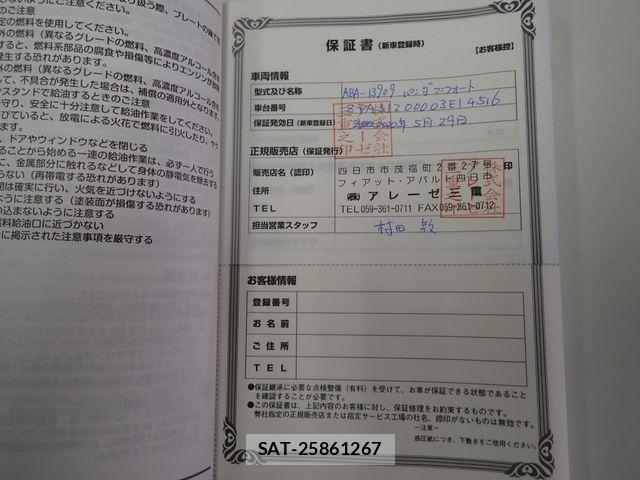 定の燃料を使用してください。
外の燃料（異なるグレードの燃料、高濃度アルコール含有
すると、燃料系部品の腐食や損傷等によりエンジンが
発生する恐れがあります。
外の燃料（異なるグレードの燃料、高濃度アルコール含有
して、不具合が発生した場合は、補償の適用外となります。
スタンドで給油するときのご注意
守り、安全に十分注意して給油作業をしてください。
びていると、放電による火花で燃料に引火したり、やけ
、ドアやウィンドウなどを閉じる
ることから始める一連の給油作業は、必ず一人で行う
に、金属部分に触れるなどして身体の静電気を除去する
らない（再帯電する恐れがあります）
閉は確実に行い、火気を近づけないようにする
ように注意する（塗装面が損傷する恐れがあります）
い込まないように注意する
燃料給油口に近づかない
に掲示された注意事項を厳守する
保証書（新車登録時）
【お客様控】
車両情報
型式及び名称 ABA-13909
車台番号
保証発効日（新車登録日） 年5月29日
正規販売店（保証発行）
販売店名（認印） 四日市市茂福町2番27号 印
住所 フィアット・アバルト四日市
㈱アレーゼ三重
TEL TEL 059-361-0711 FAX 059-361-0712
担当営業スタッフ 村田 敦
お客様情報
登録番号
お名前
ご住所
TEL
●保証継承に必要な点検整備（有料）を受けて、お車が保証できる状態であること
を確認することが必要です。
●この保証書は、上記内容のお客様に対し、保証修理をお約束するものです。
弊社指定の正規販売店または指定サービス工場の社名、捺印がないものは無効です。
－注意－
感圧紙につき、下敷きをご使用ください。
SAT-25861267